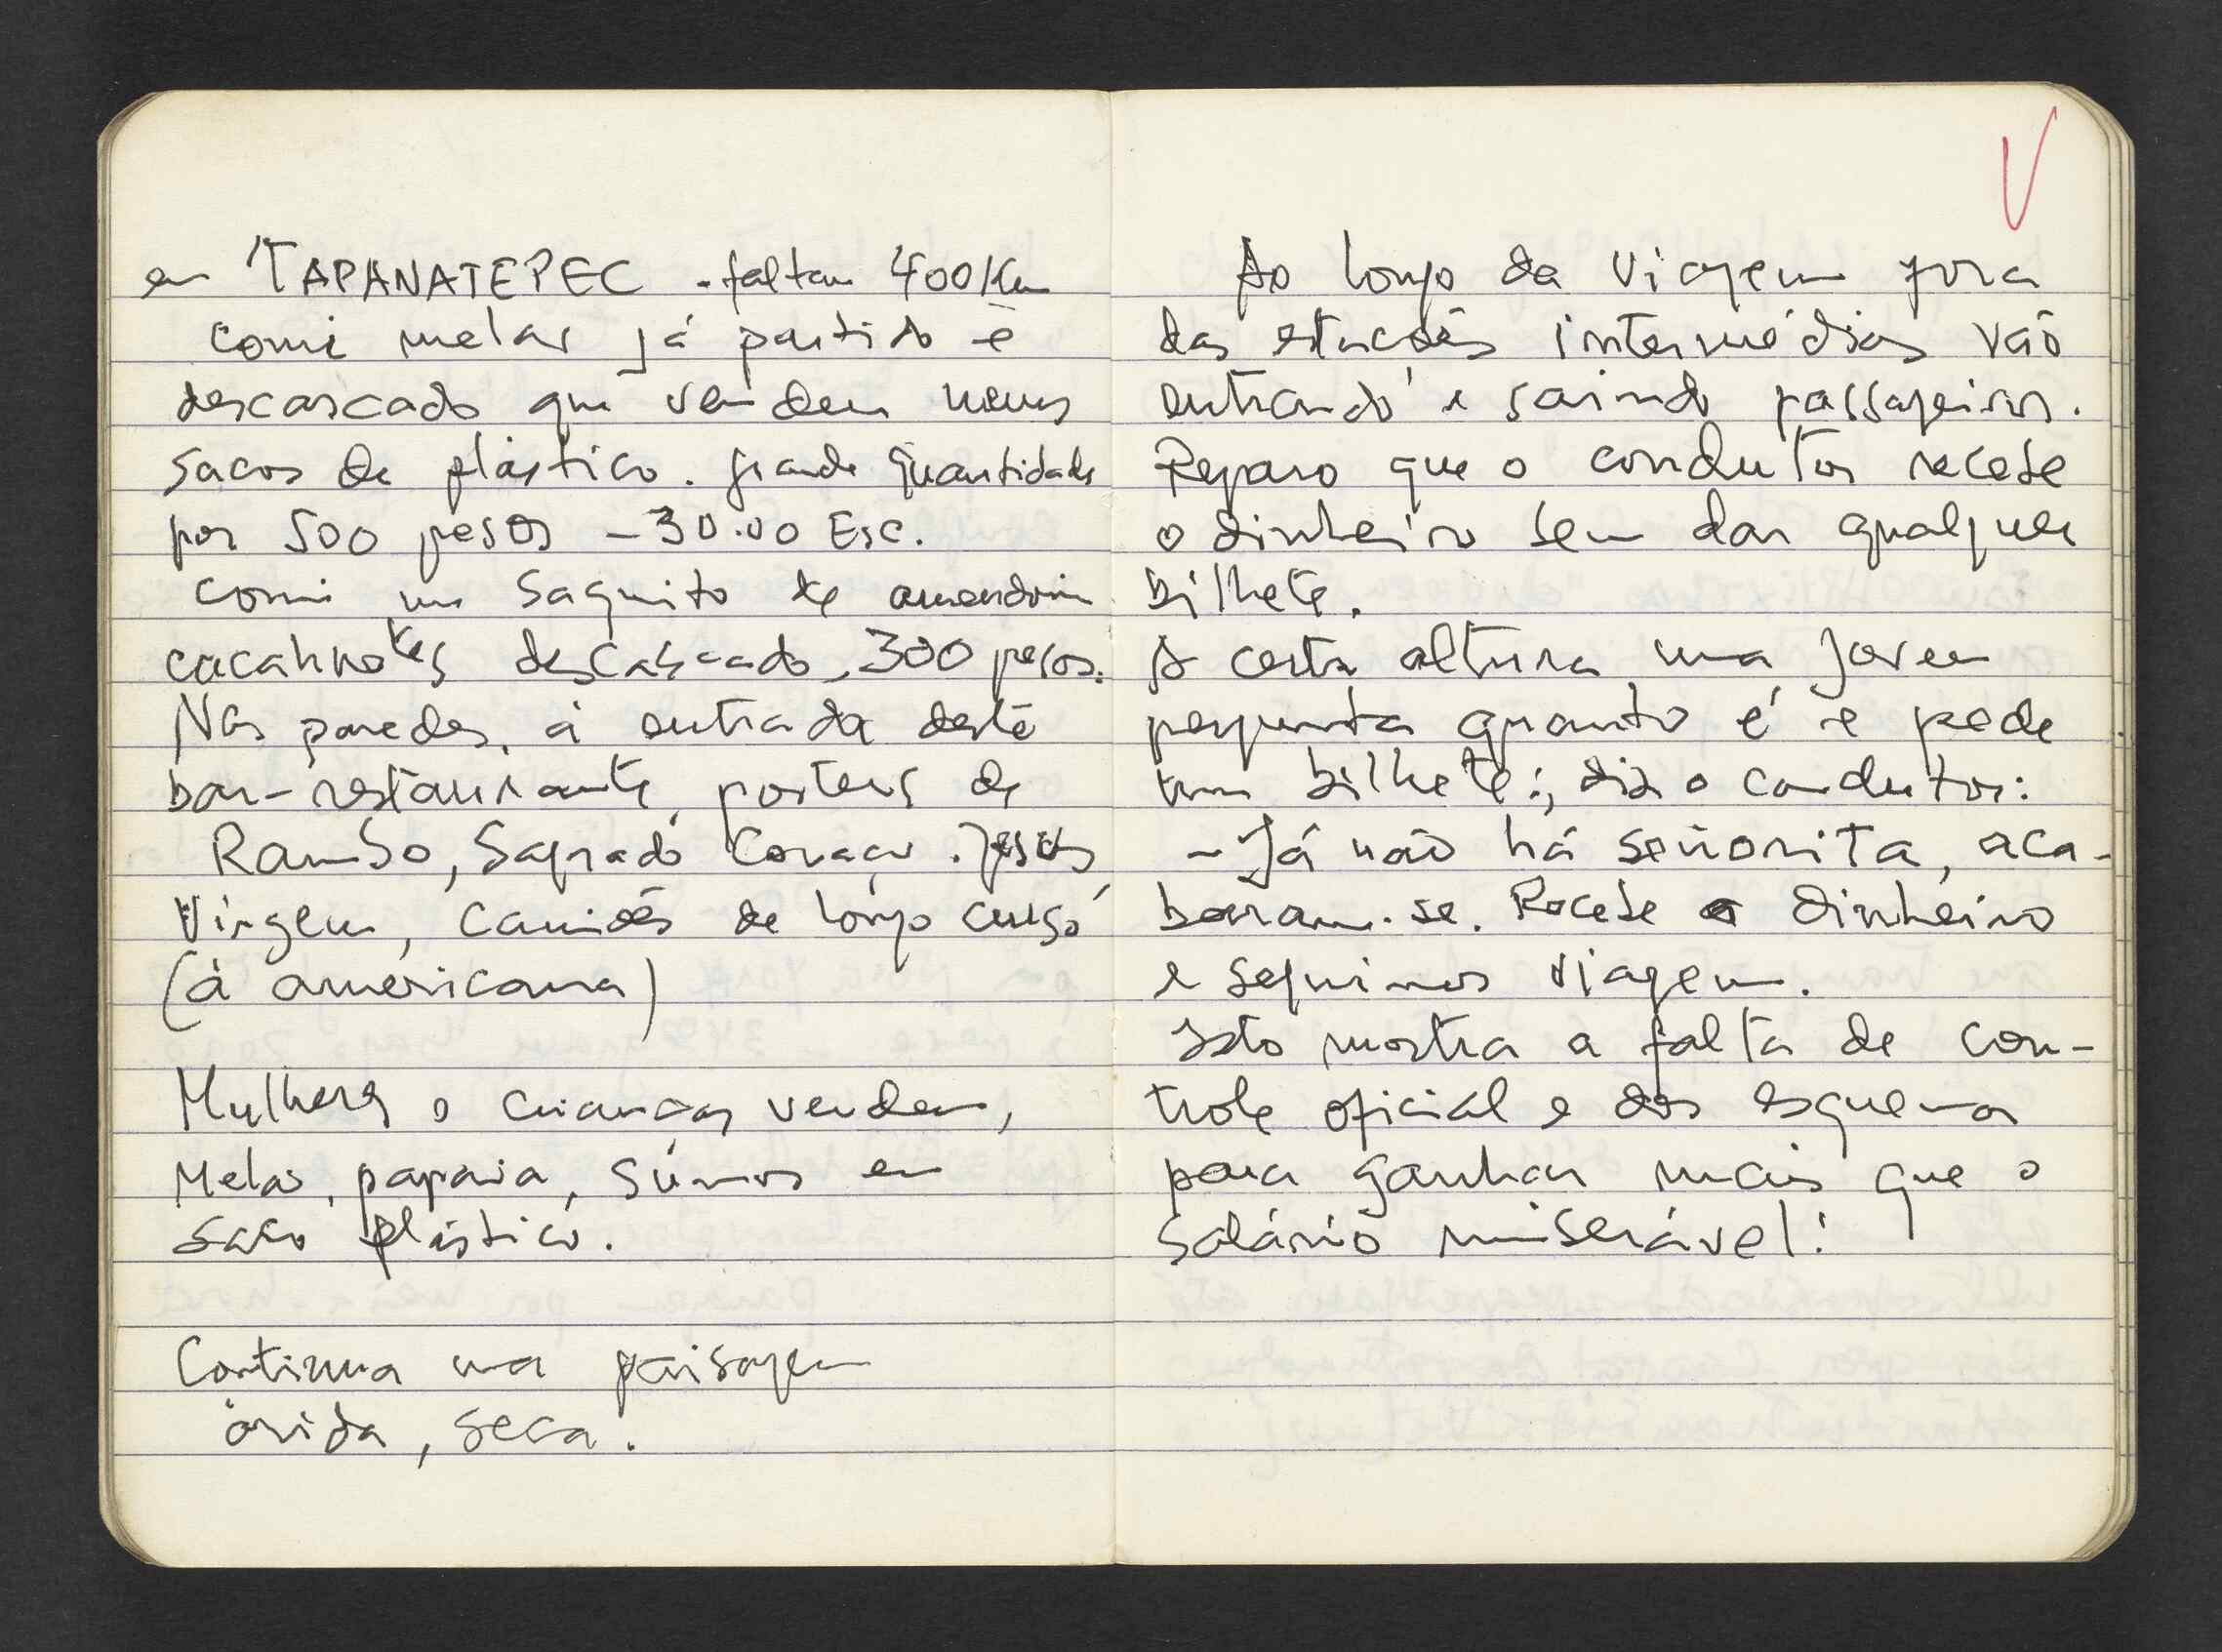 em TAPANATEPEC - faltam 400 Km
comi melão já partido e
descascado que vendem nuns
sacos de plástico. grande quantidade
por 500 pesos - 30.00 Esc.
comi um saquito de amendoim
cacahuotes descascado, 300 pesos.
Nas paredes, à entrada deste
bar-restaurante, posters de
Rambo, Sagrado Coração. Jesus,
Virgem, camiões de longo curso
(à americana)
Mulheres e crianças vendem,
Melão, papaia, sumos em
saco plástico.
Continua uma paisagem
árida, seca.
V
Ao longo da viagem fora
das estações intermédias vão
entrando e saindo passageiros.
Reparo que o condutor recebe
o dinheiro sem dar qualquer
bilhete.
A certa altura uma jovem
pergunta quanto é e pede
um bilhete:, diz o condutor:
- Já não há señorita, aca-
baram-se. Recebe o dinheiro
e seguimos viagem.
Isto mostra a falta de con-
trole oficial e dos esquemas
para ganhar mais que o
salário miserável!